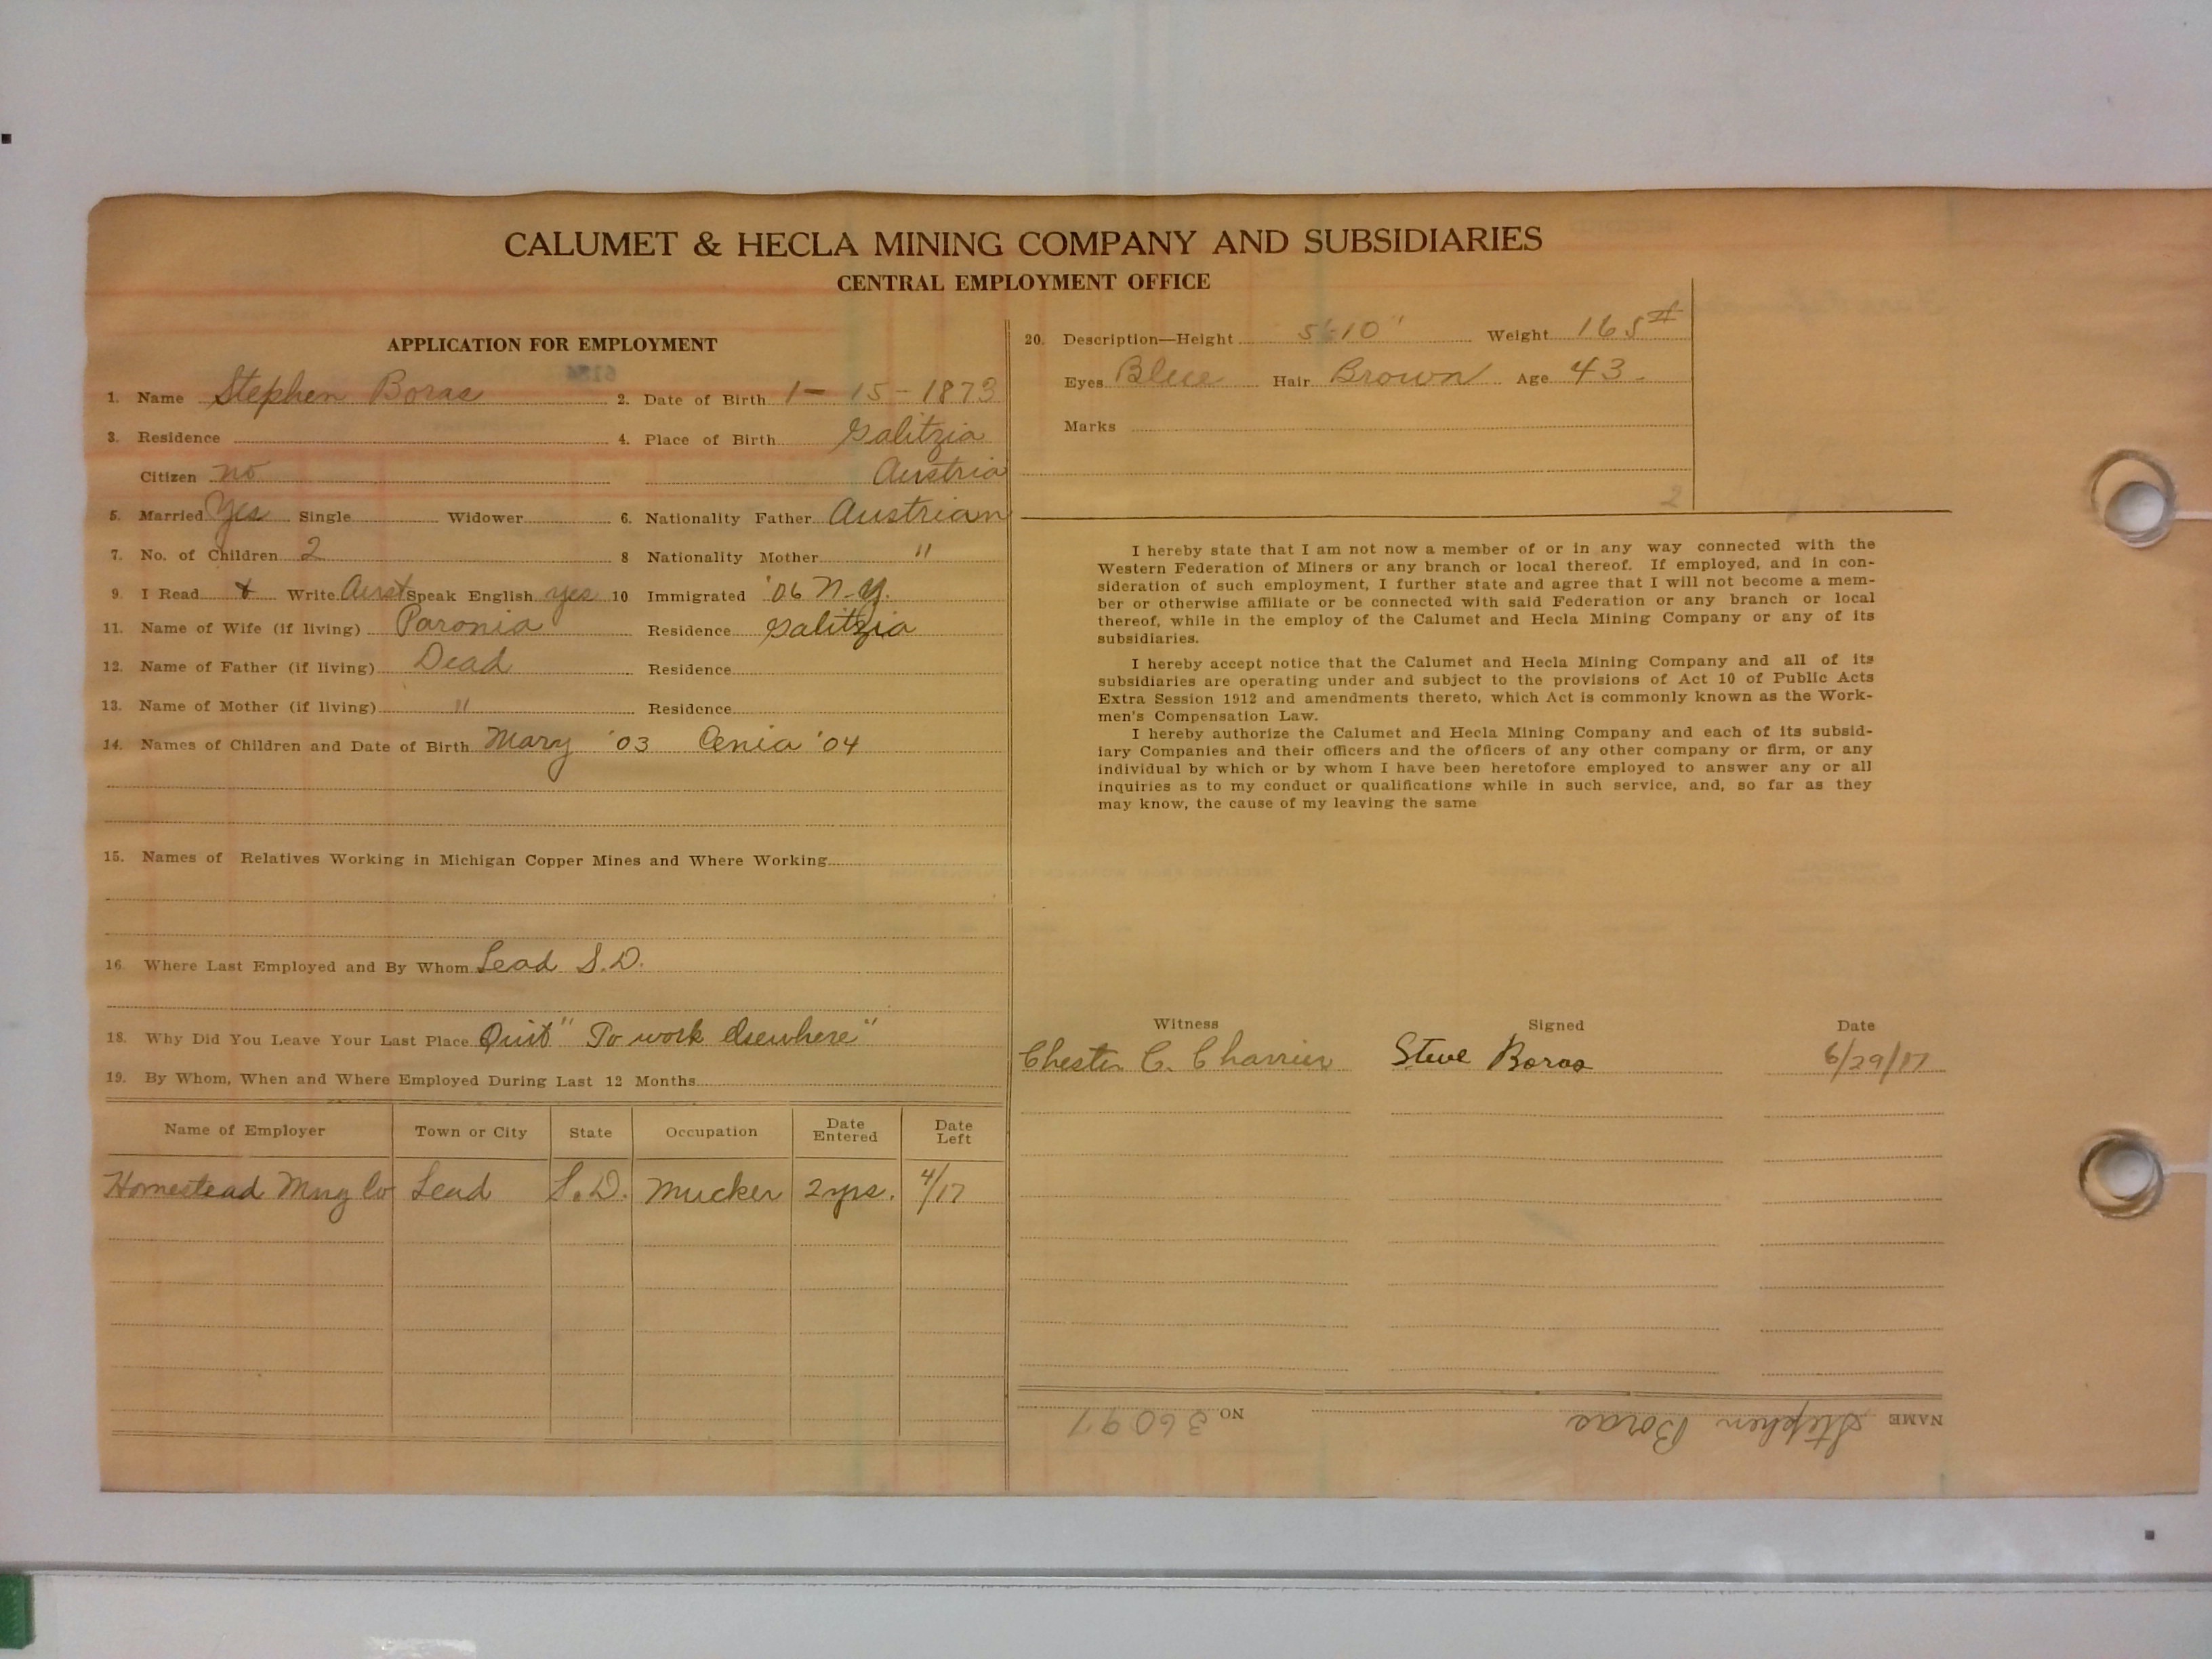 CALUMET & HECLA MINING COMPANY AND SUBSIDIARIES
CENTRAL EMPLOYMENT OFFICE
APPLICATION FOR EMPLOYMENT
1. Name Stephen Boras 2. Date of Birth 1-15-1873
3. Residence 4. Place of Birth Galitzia
Citizen no Austria
5. Married Yes Single Widower 6. Nationality Father Austrian
7. No. of Children 2 8 Nationality Mother "
9. I Read & Write Aust Speak English yes 10 Immigrated '06 N.Y.
11. Name of Wife (if living) Paronia Residence Galitzia
12. Name of Father (if living) Dead Residence
13. Name of Mother (if living) " Residence
14. Names of Children and Date of Birth Mary '03 Cenia '04
15. Names of Relatives Working in Michigan Copper Mines and Where Working
16 Where Last Employed and By Whom Lead S.D.
18. Why Did You Leave Your Last Place Quit "To work elsewhere"
19. By Whom, When and Where Employed During Last 12 Months
Name of Employer Town or City State Occupation Date Entered Date Left
Homestead Mng Co Lead S.D. Mucker 2 yrs. 4/17
20. Description—Height 5'-10" Weight 165#
Eyes Blue Hair Brown Age 43
Marks
2
I hereby state that I am not now a member of or in any way connected with the
Western Federation of Miners or any branch or local thereof. If employed, and in con-
sideration of such employment, I further state and agree that I will not become a mem-
ber or otherwise affiliate or be connected with said Federation or any branch or local
thereof, while in the employ of the Calumet and Hecla Mining Company or any of its
subsidiaries.
I hereby accept notice that the Calumet and Hecla Mining Company and all of its
subsidiaries are operating under and subject to the provisions of Act 10 of Public Acts
Extra Session 1912 and amendments thereto, which Act is commonly known as the Work-
men's Compensation Law.
I hereby authorize the Calumet and Hecla Mining Company and each of its subsid-
iary Companies and their officers and the officers of any other company or firm, or any
individual by which or by whom I have been heretofore employed to answer any or all
inquiries as to my conduct or qualifications while in such service, and, so far as they
may know, the cause of my leaving the same
Witness Signed Date
Chester C. Charrier Steve Boras 6/29/17
NAME Stephen Boras NO 36097